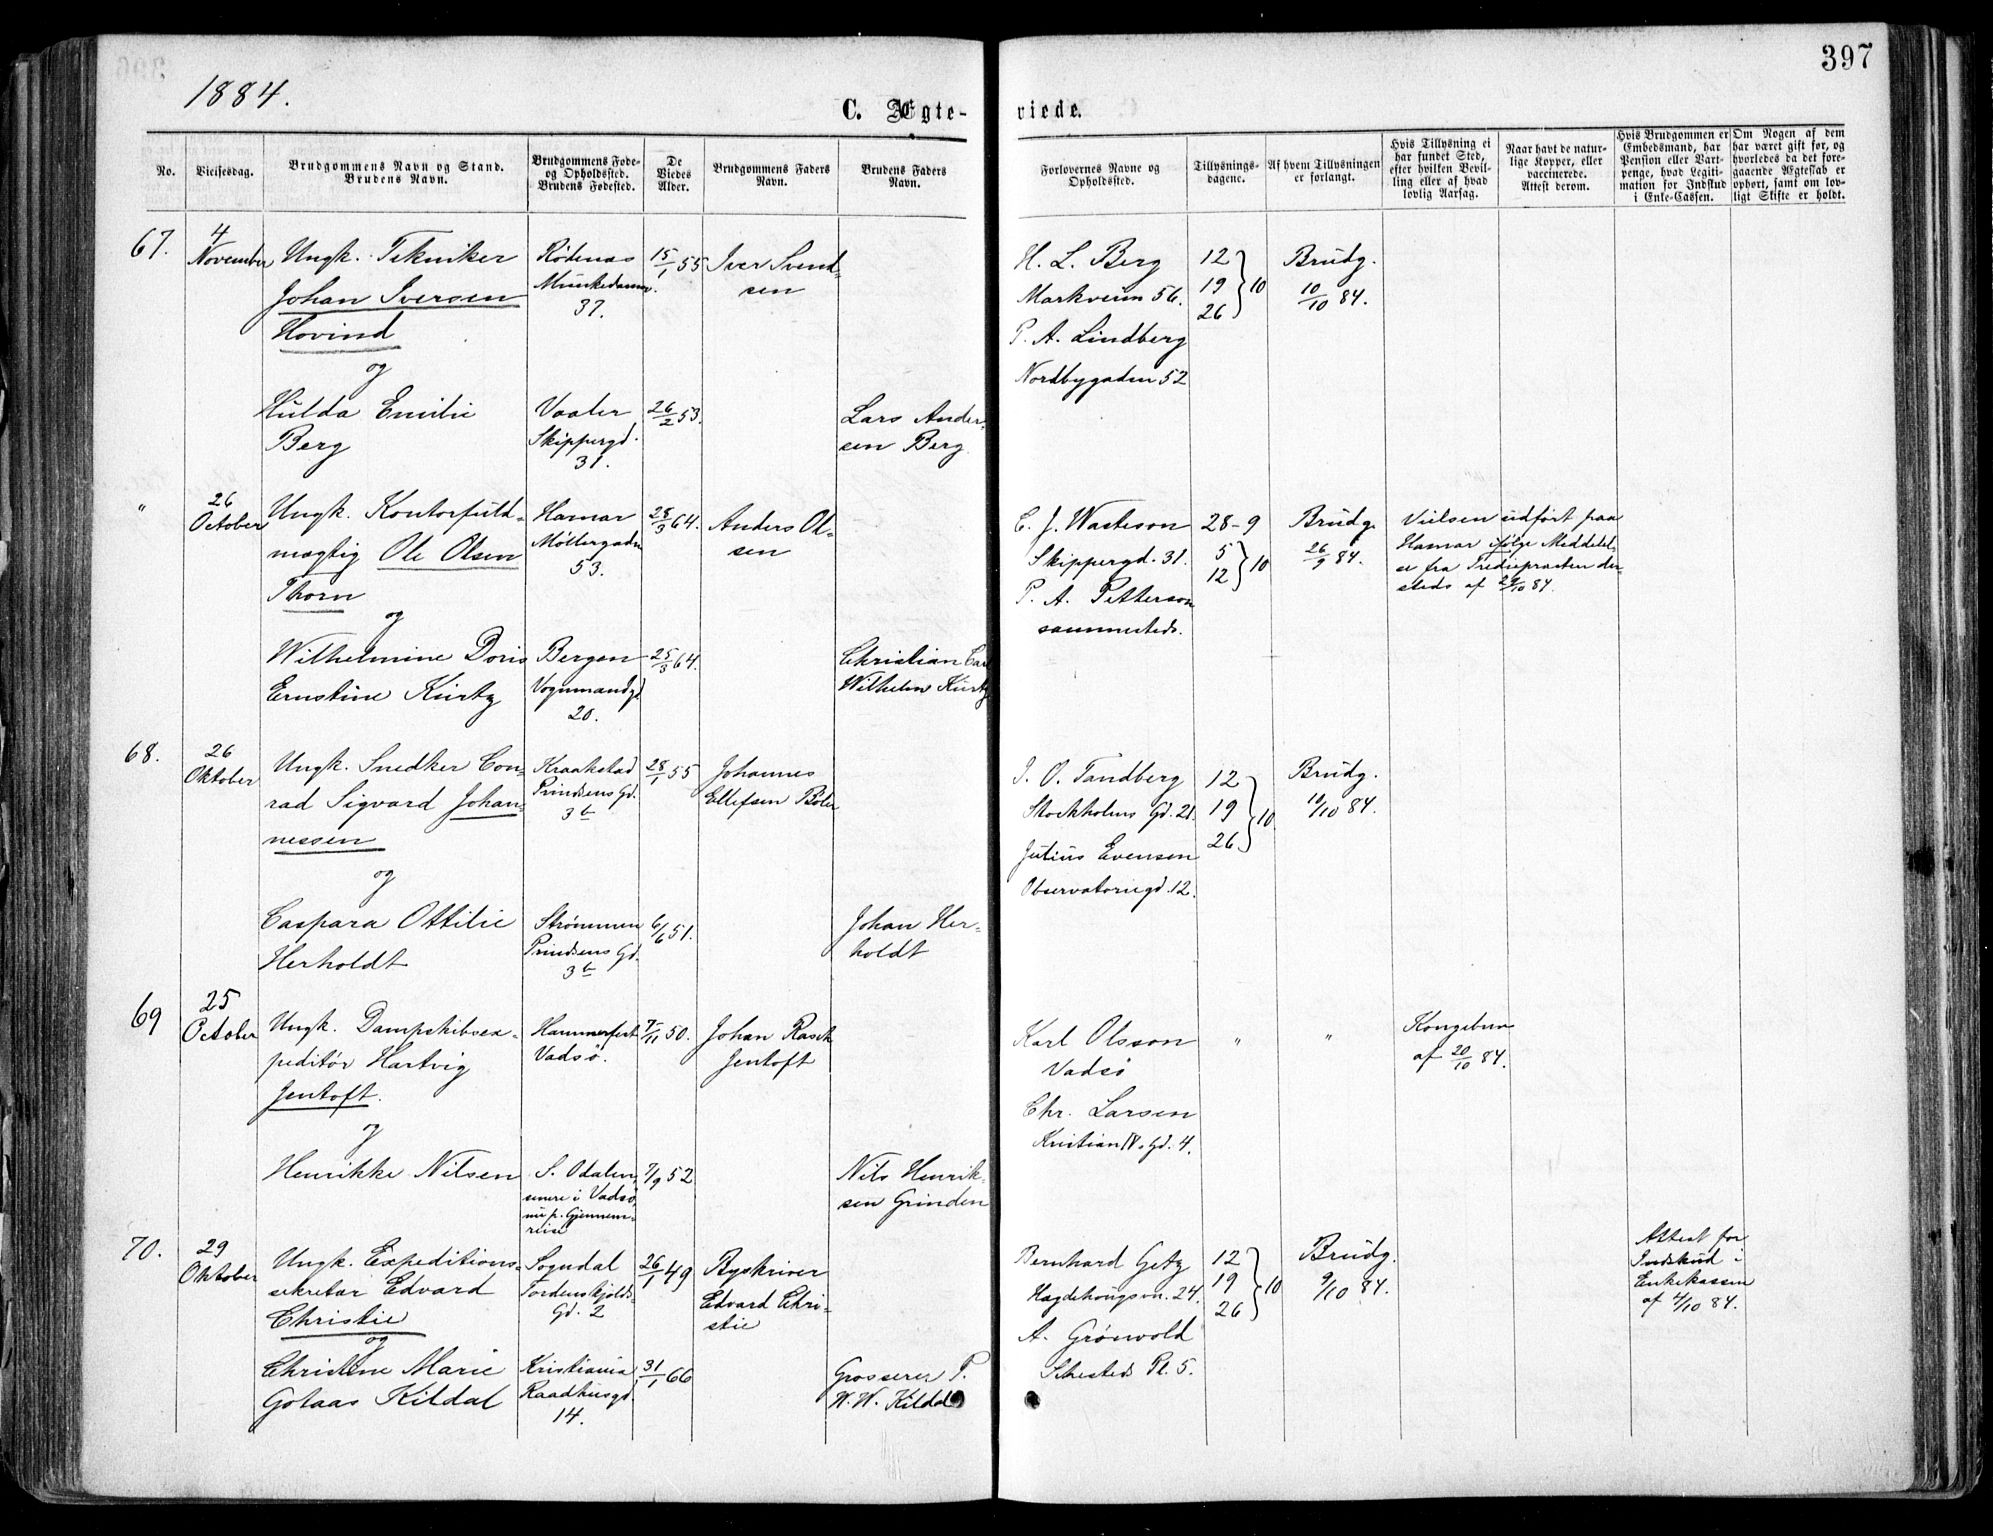 1884.
397
C. Ægte-
viede.
No.
Vielsesdag.
Brudgommens Navn og Stand.
Brudens Navn.
Brudgommens Føde-
og Opholdssted.
Brudens Fødested.
De
Viedes
Alder.
Brudgommens Faders
Navn.
Brudens Faders
Navn.
Forlovernes Navne og
Opholdssted.
Tillysnings-
dagene.
Af hvem Tillysningen
er forlangt.
Hvis Tillysning ei
har fundet Sted,
efter hvilken Bevil-
ling eller af hvad
lovlig Aarsag.
Naar havt de natur-
lige Kopper, eller
vaccinerede.
Attest derom.
Hvis Brudgommen er
Embedsmand, har
Pension eller Vart-
penge, hvad Legiti-
mation for Indskud
i Enke-Cassen.
Om Nogen af dem
har været gift før, og
hvorledes da det fore-
gaaende Ægteskab er
ophørt, samt om lov-
ligt Skifte er holdt.
67.
4
November
Ungk. Tekniker
Johan Iversen
Hovind
og
Hulda Emilie
Berg
Rødenæs
Munkedamsv.
37.
Vaaler
Skippergd.
31.
15/1 55
26/2 53.
Iver Svend-
sen
Lars Ander-
sen Berg
H. L. Berg
Markveien 56.
P. A. Lindberg
Nordbygaden 52
12
19
26
10
Brudg.
10/10 84.
"
26
October
Ungk. Kontorfuld-
mægtig Ole Olsen
Thorn
og
Wilhelmine Doris
Ernstine Kürtz
Hamar
Møllergaden
53.
Bergen
Vognmandsgd
20.
28/3 64.
25/3 64.
Anders Ol-
sen
Christian Carl
Wilhelm Kürtz
C. J. Wasteson
Skippergd. 31.
P. A. Petterson
sammesteds.
28-9
5
12
10
Brudg
26/9 84.
Vielsen udført paa
Hamar ifølge Meddelel-
se fra Stedepræsten der-
steds af 29/10 84.
68.
26
Oktober
Ungk. Snedker Con-
rad Sigvard Johan-
nessen
og
Caspara Ottilie
Herholdt
Kraakstad
Prindsens Gd.
3b
Strømmen
Prindsens Gd.
3b
28/1 55
6/6 51.
Johannes
Ellefsen Boler
Johan Her-
holdt
J. O. Tandberg
Stockholms Gd. 21.
Julius Evensen
Observatoriegd. 12.
12
19
26
10.
Brudg.
10/10 84.
69
25
October
Ungk. Dampskibsex-
peditør Hartvig
Jentoft.
og
Henrikke Nilsen
Hammerfest
Vadsø.
S. Odalen,
senere i Vadsø,
nu p. Gjennem-
reise
7/11 50.
7/9 52
Johan Rasch
Jentoft
Nils Henrik-
sen Grinden
Karl Olsson
Vadsø
Chr. Larsen
Kristian IVs Gd. 4.
"
"
Kongebrev
af 20/10 84.
70.
29
Oktober
Ungk. Expeditions-
sekretær Edvard
Christie
og
Christine Marie
Gotaas Kildal
Sogndal
Tordenskjolds
Gd. 2
Kristiania
Raadhusgd.
14.
26/1 49
31/1 66
Byskriver
Edvard Chri-
stie
Grosserer P.
W. W. Kildal
Bernhard Getz
Hægdehougsvn. 24.
A. Grönvold
Sehesteds Pl. 5.
12
19
26
10
Brudg.
9/10 84.
Attest for
Indskud i
Enkekassen
af 4/10 84.